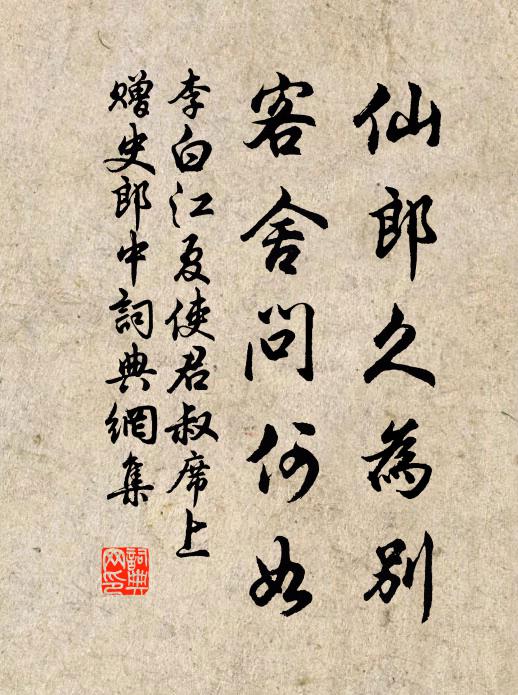 仙郎久為別
客舍問何如
李白江夏使君叔席上
贈史郎中詞典網集
詞典
网印